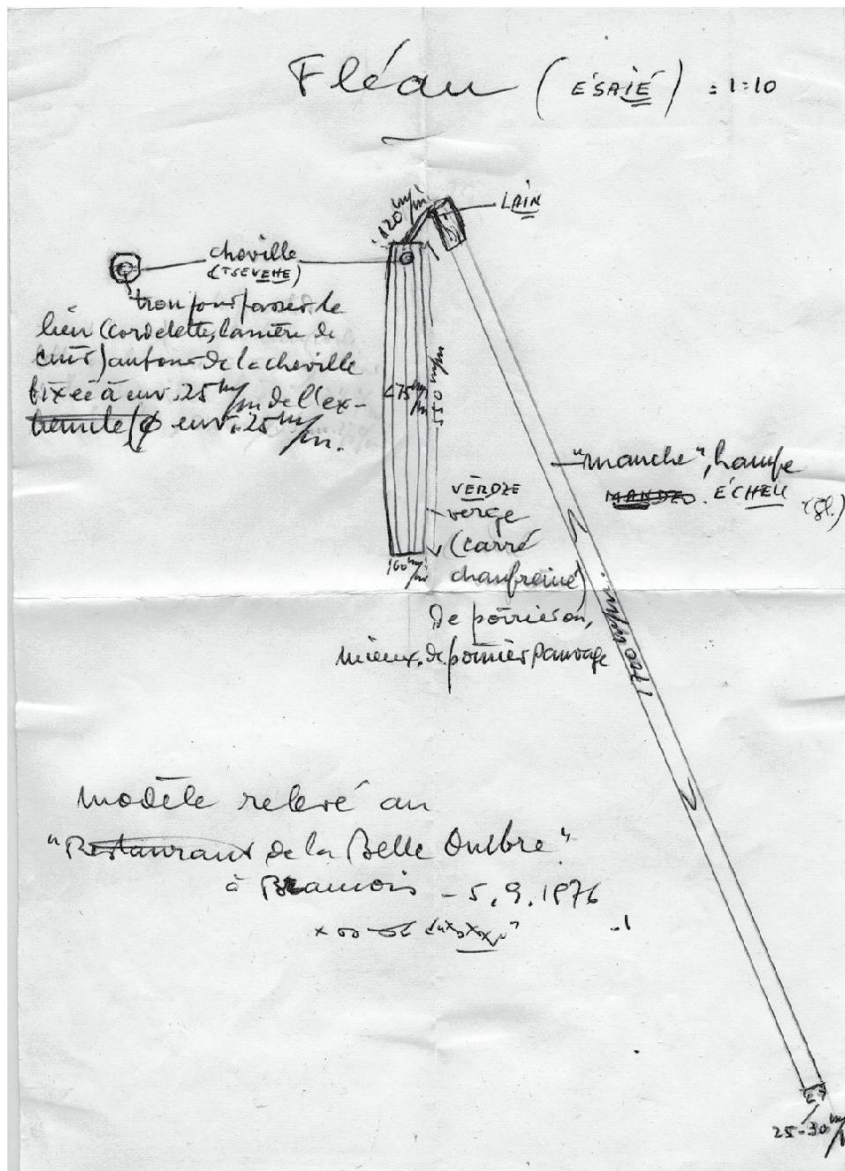 Fléau (ÉSAIÉ) = 1:10
120 m/m
LAIN
cheville
(TSEVEHE)
trou pour passer le
lien (cordelette, lanière de
cuir) autour de la cheville
fixée à env. 25 m/m de l'ex-
trémité/ø env. 25 m/m.
75 m/m
550 m/m
"manche", hampe
ÉCHEU
VÈRDZE
verge
(carré
chanfreiné)
60 m/m
de poirier ou,
mieux, de pommier sauvage
1720 m/m
modèle relevé au
"Restaurant de la Belle Ombre"
à Bramois - 5.9.1976
25-30 m/m